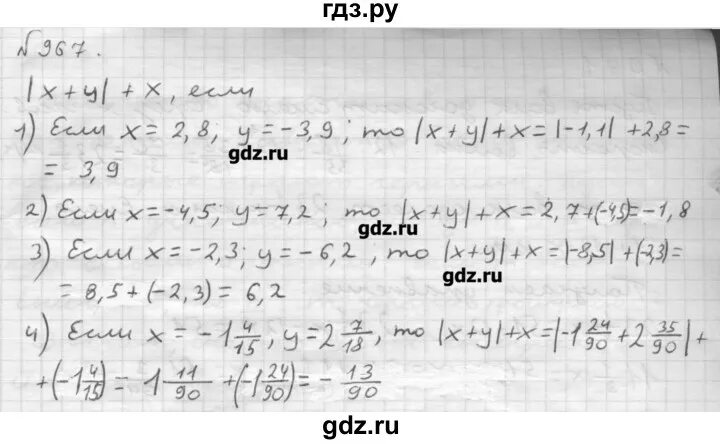 гдз.ру
№967.
|x+y|+x, если
1) Если x = 2,8; y = -3,9; то |x+y|+x = |-1,1| +2,8 =
gdz.ru
= 3,9
2) Если x=-4,5; y=7,2; то |x+y|+x=2,7+(-4,5)=-1,8
gdz.ru
3) Если x = -2,3; y = -6,2, то |x+y|+x=|-8,5|+(-2,3)=
gdz.ru
= 8,5+(-2,3) = 6,2
4) Если x = -1 4/15, y = 2 7/18, то |x+y|+x=|-1 24/90 + 2 35/90| +
+(-1 4/15) = 1 11/90 +(-1 24/90) = - 13/90
gdz.ru